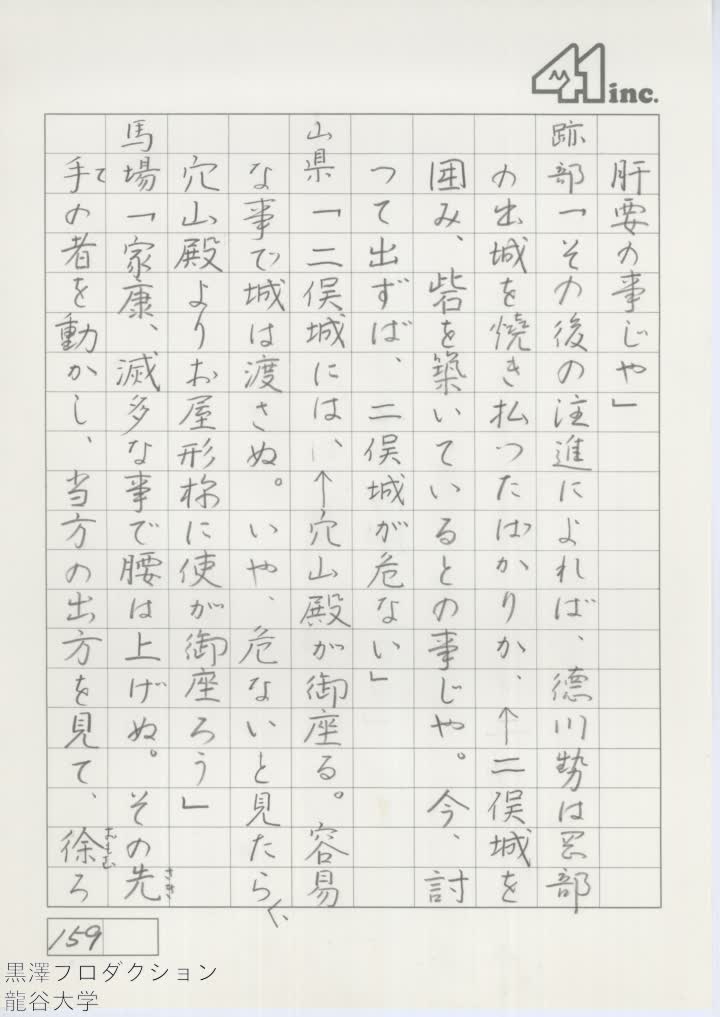 41 inc.
肝要の事じゃ」
跡部「その後の注進によれば、徳川勢は岡部
の出城を焼き払ったばかりか、↑二俣城を
囲み、砦を築いているとの事じゃ。今、討
つて出ずば、二俣城が危ない」
山県「二俣城には、↑穴山殿が御座る。容易
な事で城は渡さぬ。いや、危ないと見たらば、
穴山殿よりお屋形様に使が御座ろう」
馬場「家康、滅多な事で腰は上げぬ。その先さき
手ての者を動かし、当方の出方を見て、徐おもむろ
159
黒澤フロダクション
龍谷大学